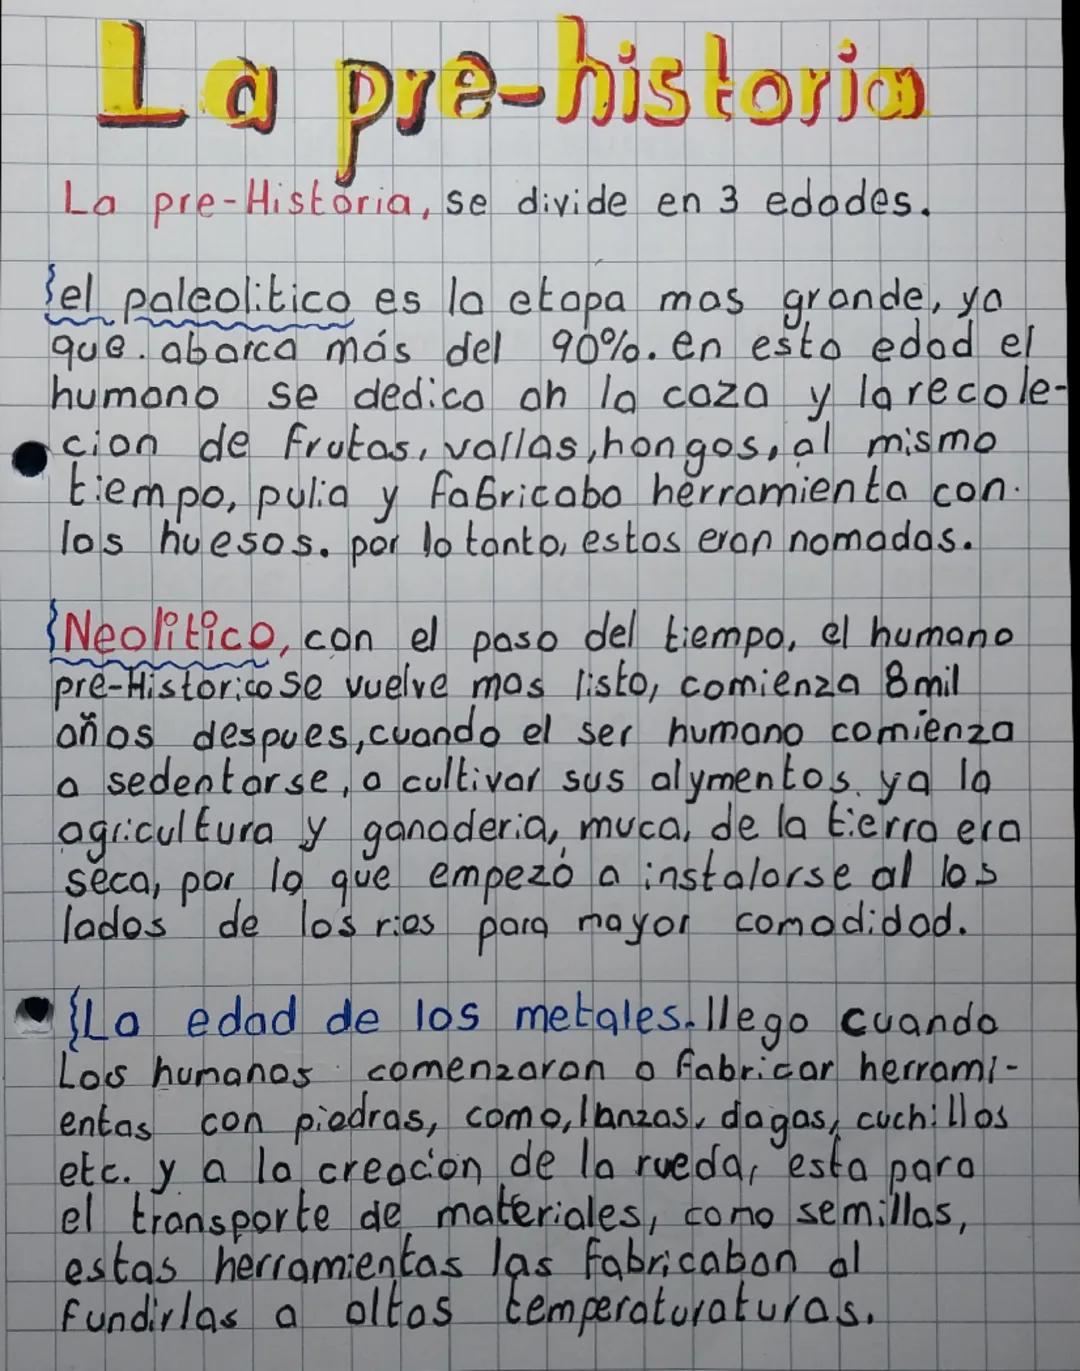 La pre-historia
La pre-Historia, se divide en 3 edades.
{el paleolitico es la etapa mas grande, ya
que. abarca más del 90%. en esta edad el
humano se dedica ah la caza y la recole-
cion de frutas, vallas, hongos, al mismo
tiempo, pulia y fabricaba herramienta con.
los huesos. por lo tanto, estos eran nomadas.
{Neolitico, con el paso del tiempo, el humano
pre-Historico se vuelve mas listo, comienza 8 mil
años despues, cuando el ser humano comienza
a sedentarse, a cultivar sus alymentos. ya la
agricultura y ganaderia, muca, de la tierra era
seca, por lo que empezó a instalarse al los
lados de los rios para mayor comodidad.
{La edad de los metales. llego cuando
Los humanos comenzaron a fabricar herrami-
entas con piedras, como, lanzas, dagas, cuchillos
etc. y a la creacion de la rueda, esta para
el transporte de materiales, como semillas,
estas herramientas las fabricaban al
fundirlas a altas temperaturaturas.